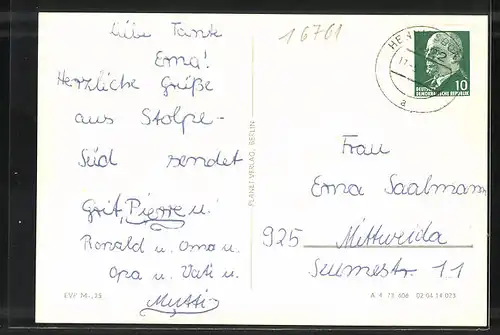 Liebe Tante
Erna!
Herzliche Grüße
aus Stolpe-
Süd sendet
Grit, Pierre u.
Ronald u. Oma u.
Opa u. Vati u.
Mutti
EVP M -,25
PLANET-VERLAG, BERLIN
16761
10
DEUTSCHE
DEMOKRATISCHE REPUBLIK
a
Frau
Erna Saalmann
925 Mittweida
Seumestr. 11